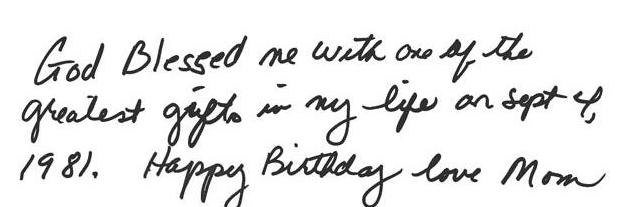 God Blessed me with one of the
greatest gifts in my life on Sept 4,
1981. Happy Birthday love Mom